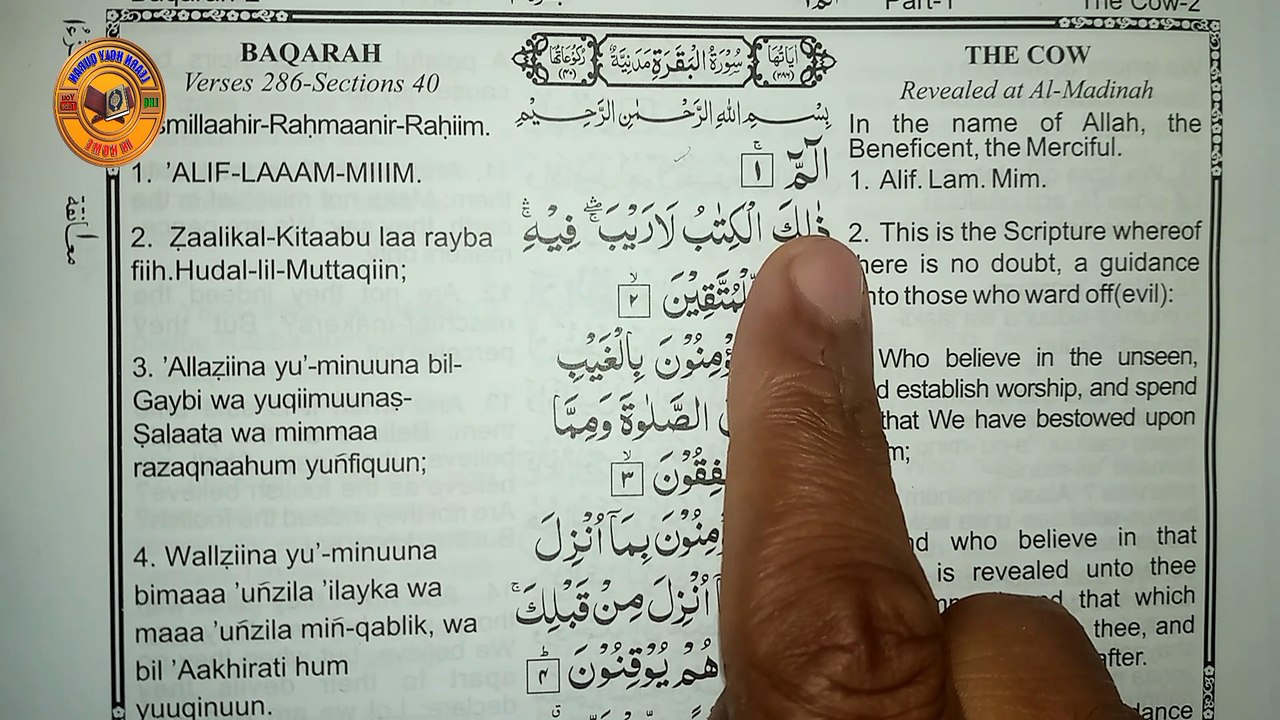 Part-1
The Cow-2
BAQARAH
Verses 286-Sections 40
smillaahir-Raḥmaanir-Raḥiim.
1. ’ALIF-LAAAM-MIIIM.
2. Ẓaalikal-Kitaabu laa rayba
fiih.Hudal-lil-Muttaqiin;
3. ’Allaẓiina yu’-minuuna bil-
Gaybi wa yuqiimuunaṣ-
Ṣalaata wa mimmaa
razaqnaahum yuńfiquun;
4. Wallẓiina yu’-minuuna
bimaaa ’uńzila ’ilayka wa
maaa ’uńzila miń-qablik, wa
bil ’Aakhirati hum
yuuqinuun.
سُوْرَةُ الْبَقَرَةِ مَدَنِيَّةٌ
بِسْمِ اللهِ الرَّحْمٰنِ الرَّحِيْمِ
الٓمّٓ ۚ ١
ذٰلِكَ الْكِتٰبُ لَا رَيْبَ ۛ فِيْهِ ۛ
لِّلْمُتَّقِيْنَ ۙ ٢
بِالْغَيْبِ
الصَّلٰوةَ وَمِمَّا
٣
بِمَآ اُنْزِلَ
اُنْزِلَ مِنْ قَبْلِكَ ۚ
هُمْ يُوْقِنُوْنَ ؕ ٤
THE COW
Revealed at Al-Madinah
In the name of Allah, the
Beneficent, the Merciful.
1. Alif. Lam. Mim.
2. This is the Scripture whereof
here is no doubt, a guidance
nto those who ward off(evil):
Who believe in the unseen,
d establish worship, and spend
that We have bestowed upon
m;
nd who believe in that
is revealed unto thee
nd that which
thee, and
after.
dance
LEARN HOLY QURAN
AT HOME